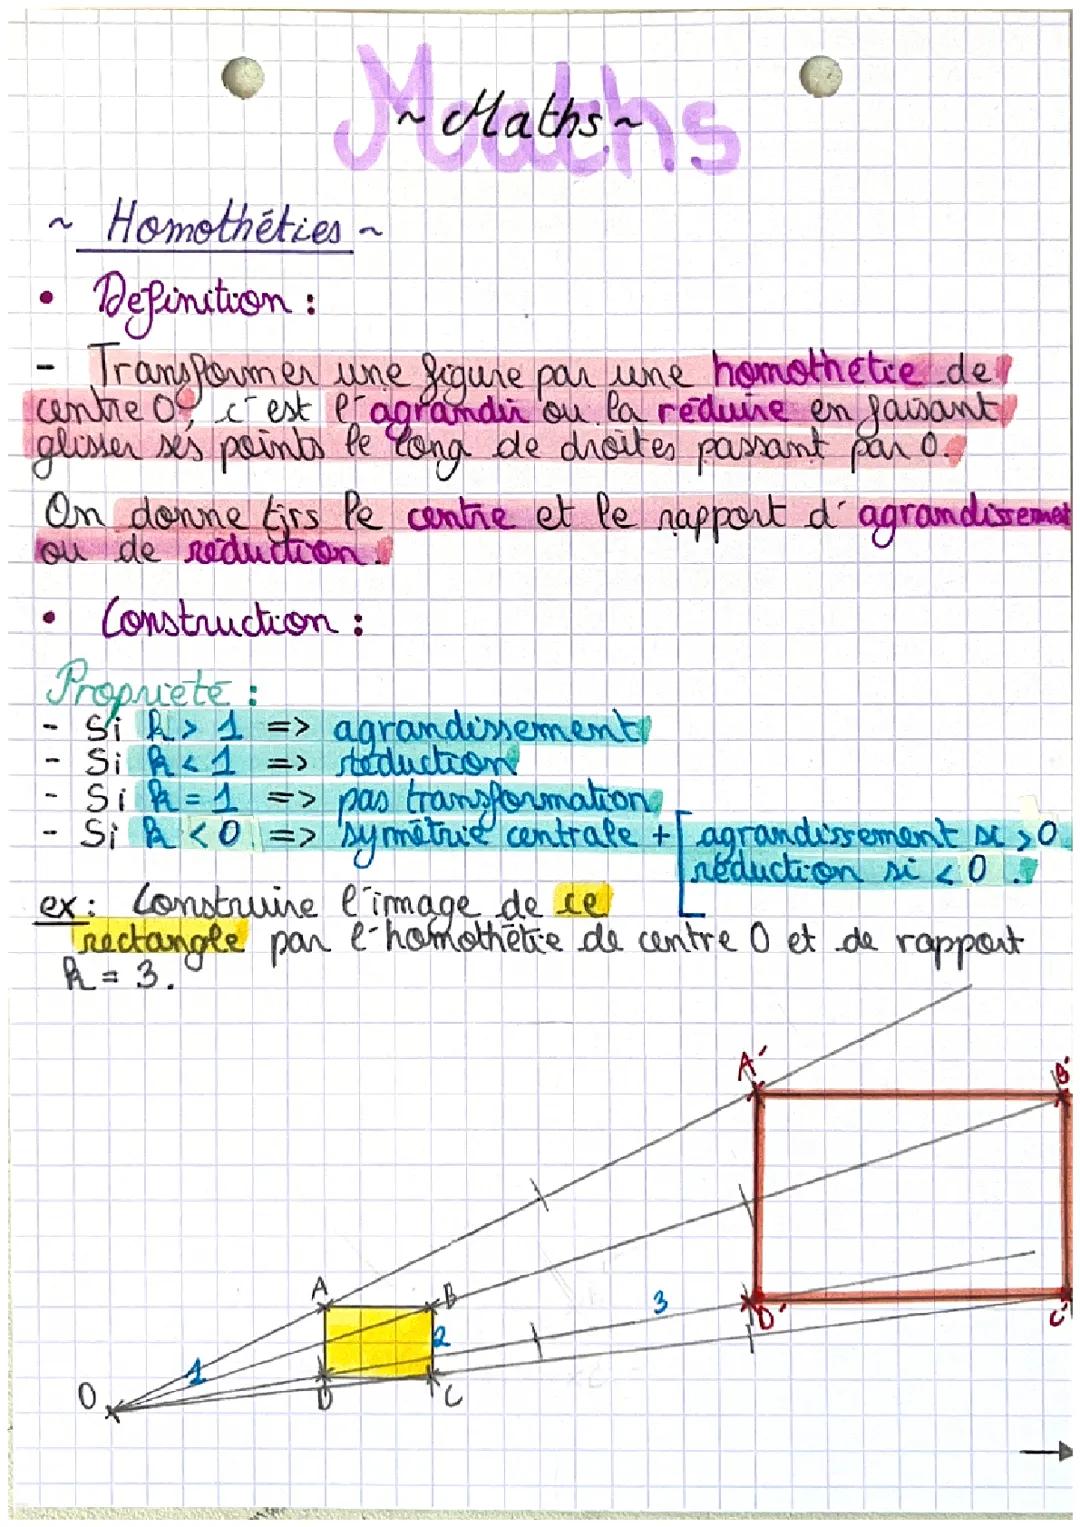 Maths
~ Maths ~
~ Homothéties ~
• Définition :
- Transformer une figure par une homothétie de
centre O, c'est l'agrandir ou la réduire en faisant
glisser ses points le long de droites passant par O.
On donne tjrs le centre et le rapport d'agrandissement
ou de réduction.
• Construction :
Propriété :
- Si k > 1 => agrandissement
- Si k < 1 => réduction
- Si k = 1 => pas transformation
- Si k < 0 => symétrie centrale + [ agrandissement si > 0
réduction si < 0 .
ex : Construire l'image de ce
rectangle par l'homothétie de centre O et de rapport
k = 3.
A' B'
A B 3 D' C'
1 2
O D C
→